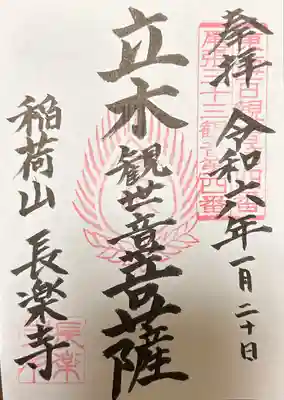 奉拝 令和六年一月二十日
立木観世音菩薩
稲荷山 長楽寺